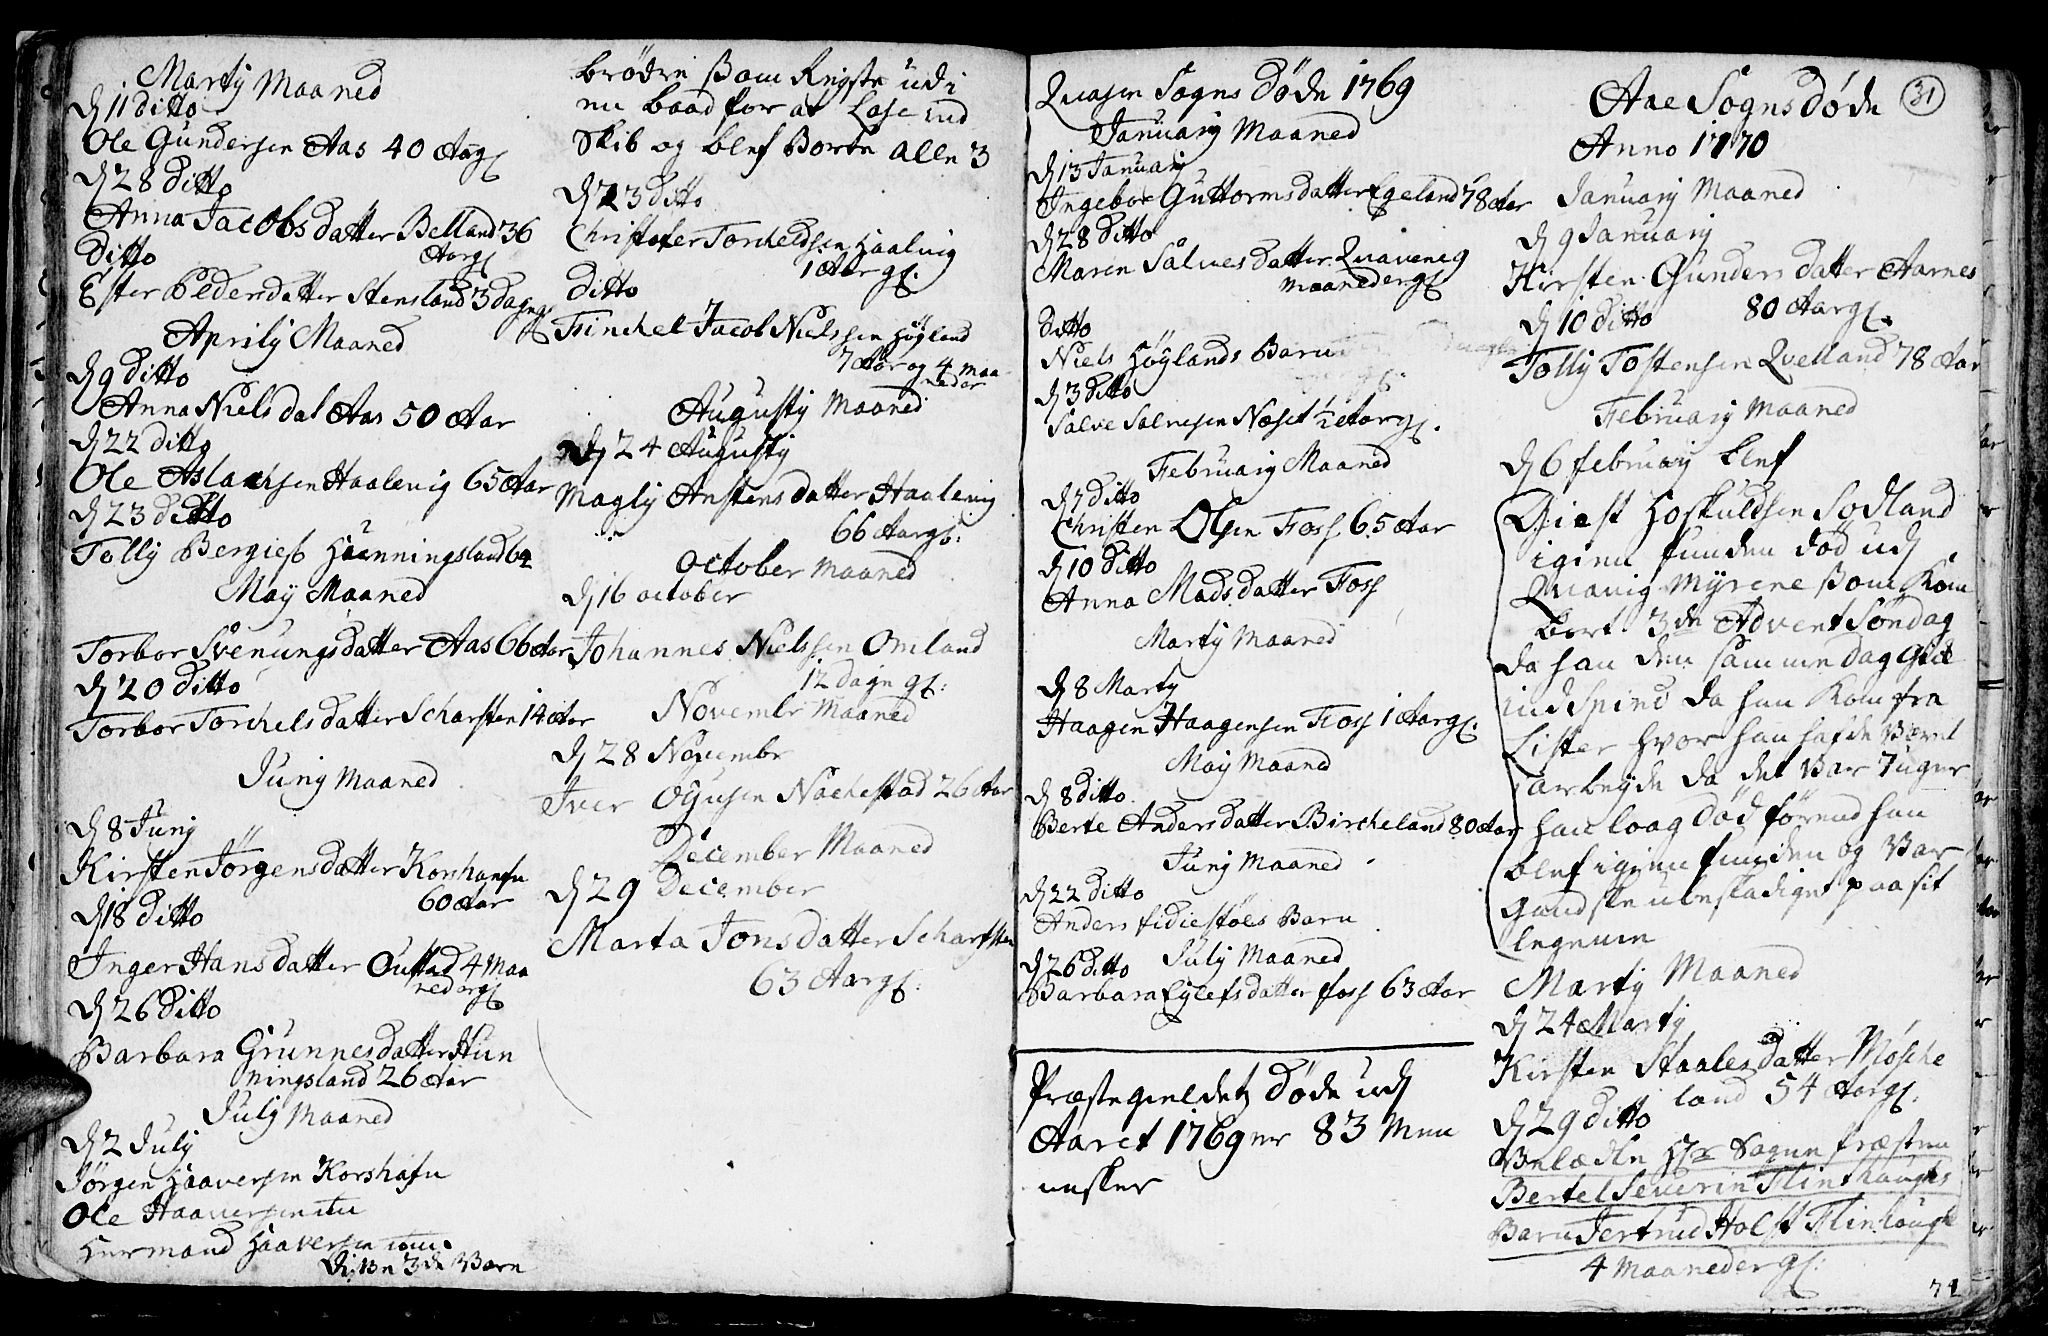 Marty Maaned
D 11 ditto
Ole Gundersen Aas 40 Aar gl
D 28 ditto
Anna Jacobs datter Belland 36
Aar gl
ditto
Ester Peders datter Stensland 3 dage gl
Aprily Maaned
D 9 ditto
Anna Niels dat Aas 50 Aar
D 22 ditto
Ole Aslachsen Haalevig 65 Aar
D 23 ditto
Tolly Bergies Hænningsland 62
May Maaned
Torbor Svenungsdatter Aas 66 Aar
D 20 ditto
Torbor Torchelsdatter Scharsten 14 Aar
Juny Maaned
D 8 Juny
Kirsten Jörgensdatter Korshafn
60 Aar
D 18 ditto
Inger Hans datter Oustad 4 Maa
neder gl
D 26 ditto
Barbara Grunnesdatter Hun
ningsland 26 Aar
July Maaned
D 2 July
Jörgen Haaversen Korshafn
Ole Haaversen
Hermand Haaversen
Disse 3de Vare
brödre som Reyste ud i
en baad for at Lose ind
Skib og blef Borte alle 3
D 23 ditto
Christofer Torcheldsen Haalvig
1 Aar gl.
ditto
Finchel Jacob Nielssen Höyland
7 Aar og 4 maa
neder
Augusty Maaned
D 24 Augusty
Magly Anstens datter Haalevig
66 Aar gl:
October Maaned
D 16 october
Johannes Nielssen Omland
12 dage gl:
Novembr Maaned
D 28 Novembr
Iver Ogusen Nochestad 26 Aar
December Maaned
D 29 December
Marta Jonsdatter Scharsten
63 Aar gl.
Quasen Sogns Döde 1769
January Maaned
D 13 January
Ingebor Guttormsdatter Egeland 78 Aar
D 28 ditto
Maren Salvesdatter Quavevig
maaneder gl
ditto
Niels Höylands Barn
D 3 ditto
Salve Salvesen Næset 1/2 Aar gl.
February Maaned
D 7 ditto
Christen Olsen Foss 65 Aar
D 10 ditto
Anna Madsdatter Foss
Marty Maaned
D 8 Marty
Haagen Haagensen Foss 1 Aar gl.
May Maaned
D 8 ditto
Berte Andersdatter Bircheland 80 Aar
Juny Maaned
D 22 ditto
Anders Fidiestöes Barn
July Maaned
D 26 ditto
Barbara Eylefsdatter foss 63 Aar
Præstegieldetz Döde udj
Aaret 1769 er 83 Men
nesker
Aae Sogns döde
31
Anno 1770
January Maaned
D 9 January
Kirsten Gunders datter Aarnes
80 Aar gl.
D 10 ditto
Tolly Tostensen Qvelland 78 Aar
February Maaned
D 6 february blef
Giest Hoskuldsen Sodland
igien funden död udj
Quavig Myrene som Kom
bort 3de Advent Söndag
da han den samme dag gik
ind Spind da han Kom fra
Lister hvor han hafde Været
i arbeyde da det Var 7 uger
han laag Död förend han
blef igien funden og Var
gandske ubeskadiget paa sit
legeme
Marty Maaned
D 24 Marty
Kirsten Staalesdatter Mösche
land 54 Aar gl.
D 29 ditto
Velædle Hr Sogne Præsten
Bertel Severin Flinthaughs
Barn Jertrud Holst Flinhough
4 Maaneder gl:
71